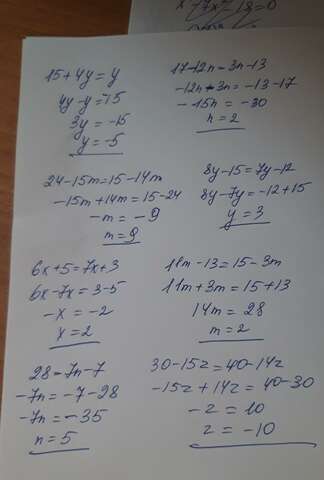 15+4y=y
4y-y=-15
3y=-15
y=-5
17-12n=3n-13
-12n-3n=-13-17
-15n=-30
n=2
24-15m=15-14m
-15m+14m=15-24
-m=-9
m=9
8y-15=7y-12
8y-7y=-12+15
y=3
6x+5=7x+3
6x-7x=3-5
-x=-2
x=2
11m-13=15-3m
11m+3m=15+13
14m=28
m=2
28-7n-7
-7n=-7-28
-7n=-35
n=5
30-15z=40-14z
-15z+14z=40-30
-z=10
z=-10